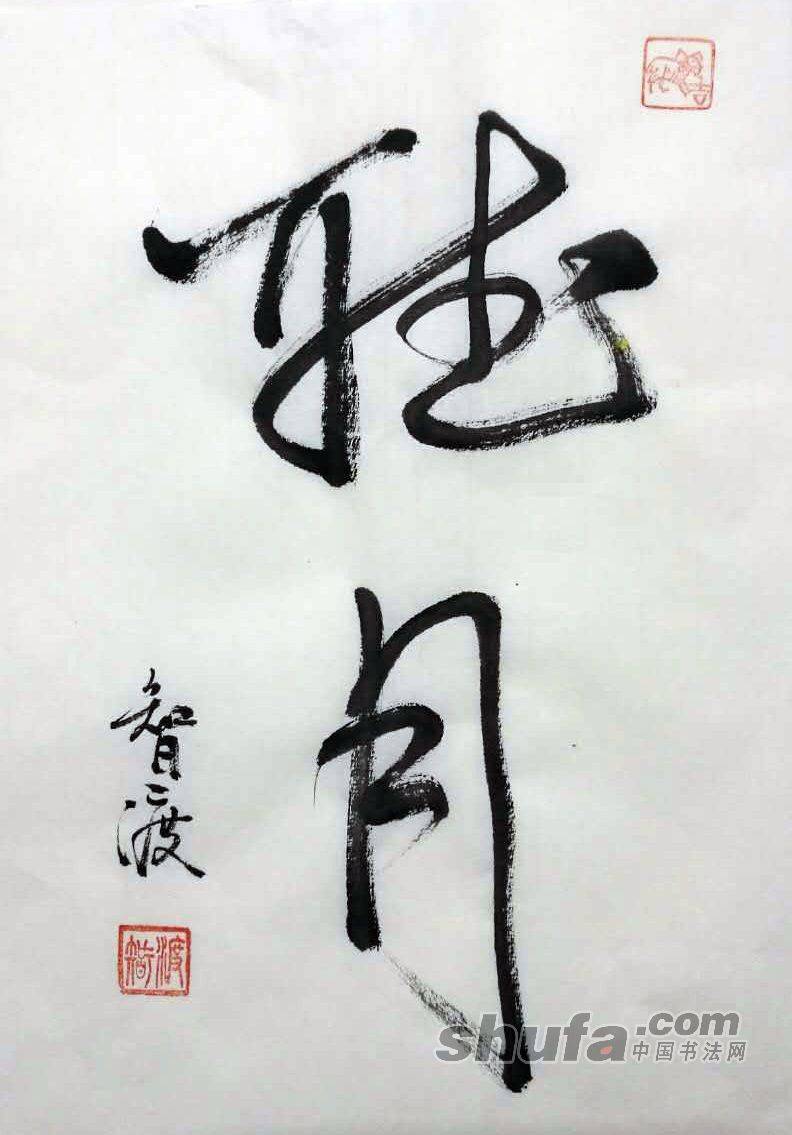 聽月
智渡
shufa.com
中国书法网